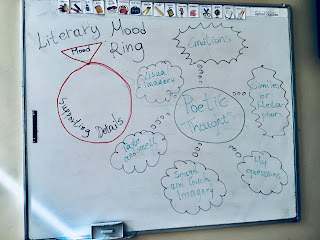 Literary Mood
Ring
Mood
Supporting Details
Emotions
Visual
Imagery
Poetic
Thoughts
Similes
or Meta
phors
Taste
and smell
and Touch
Imagery
My
questions